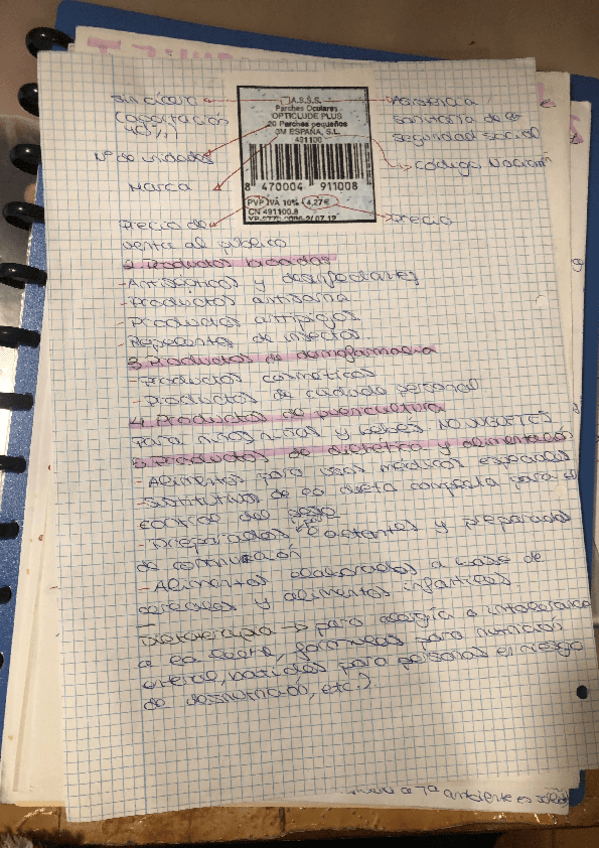 Sin cícero
(aportación
40%)
Nº de unidades
Marca
Precio de
venta al público
A.S.S.S.
Parches Oculares
OPTICLUDE PLUS
20 Parches pequeños
3M ESPAÑA, S.L.
491100
8 470004 911008
PVP IVA 10% 4,27€
CN 491100.8
Asistencia
sanitaria de la
seguridad social
Código Nacional
Precio
2. Productos biocidas
- Antisépticos y desinfectantes
- Productos antisarna
- Productos antipiojos
- Repelentes de insectos
3. Productos de dermofarmacia
- Productos cosméticos
- Productos de cuidado personal
4. Productos de puericultura
Para niños niñas y bebés NO LACTANTES
5. Productos de dietética y alimentación
- Alimentos para usos médicos especiales
- Sustitutivos de la dieta completa para el
control del peso
- Preparados lactantes y preparados
de continuación
- Alimentos elaborados a base de
cereales y alimentos infantiles
Dietoterapia → para alergia o intolerancia
a la leche, fórmulas para nutrición
enteral, batidos para personas en riesgo
de desnutrición, etc.)